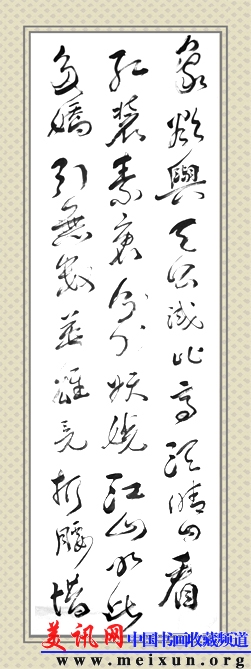 象欲與天公試比高須晴日看
紅裝素裹分外妖嬈江山如此
多嬌引無數英雄竞折腰惜
美讯网 中国书画收藏频道
www.meixun.org